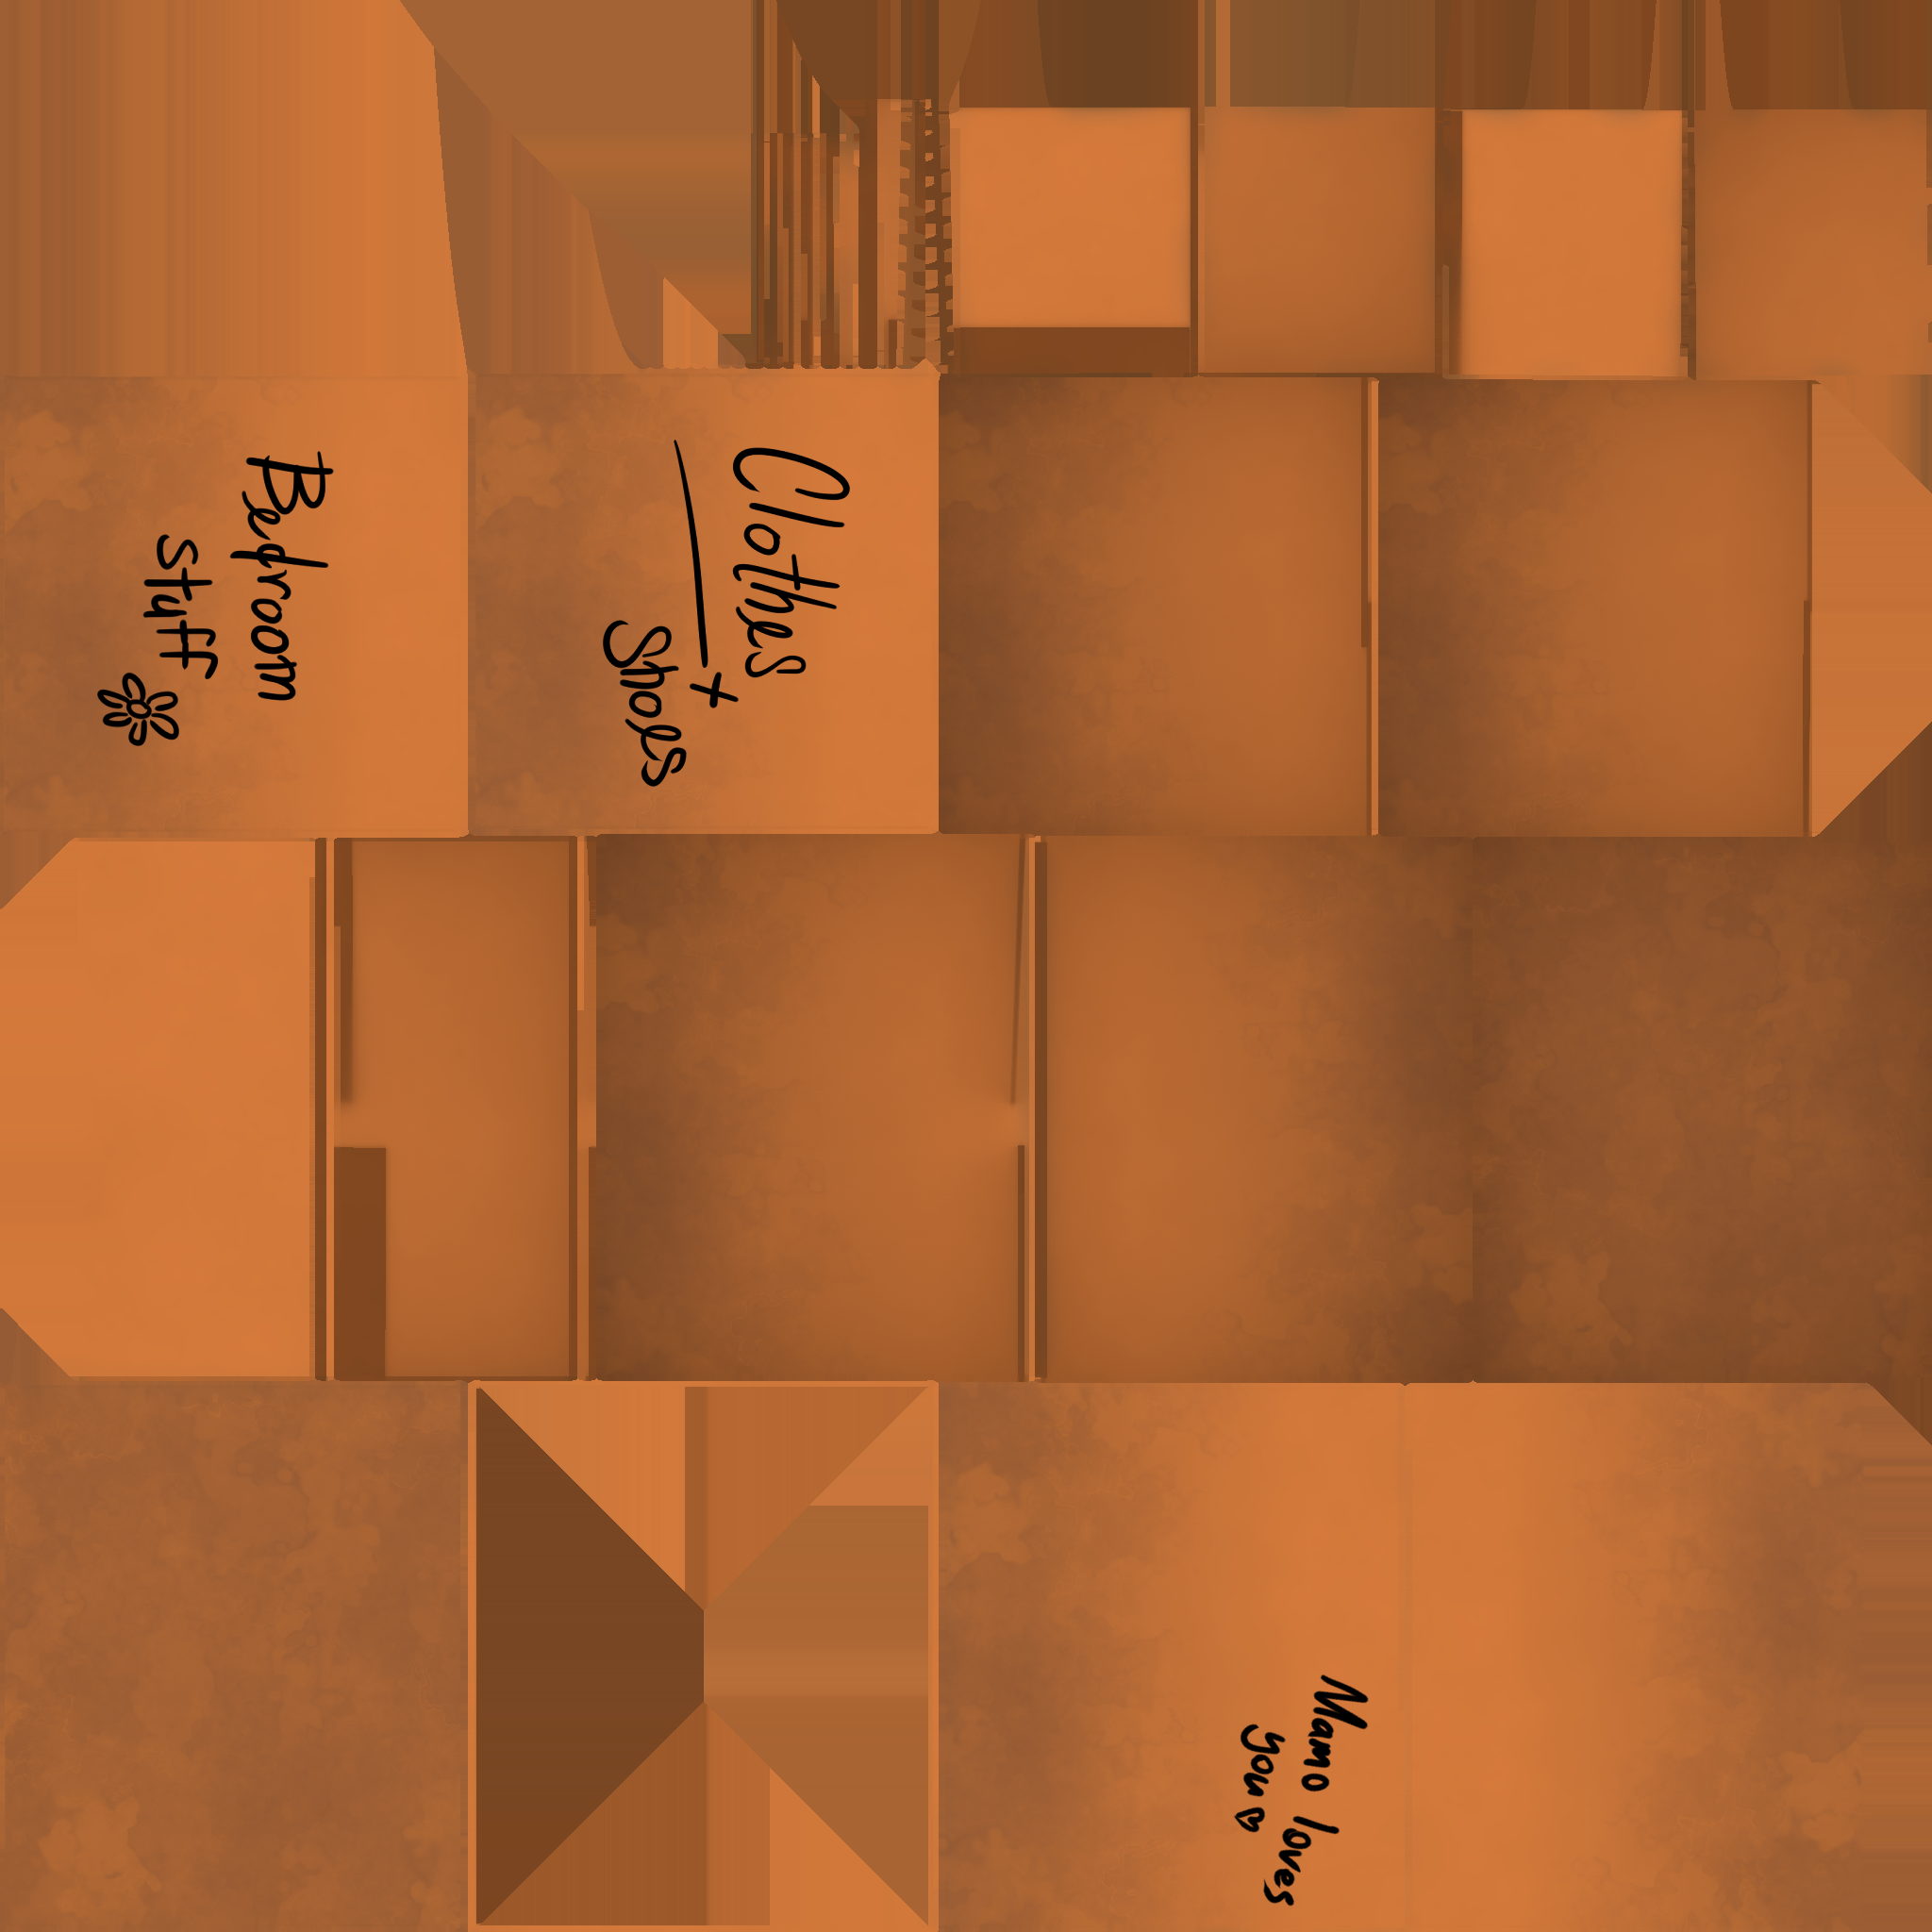 Bedroom
stuff
Clothes
+
Shoes
Mamo loves
you